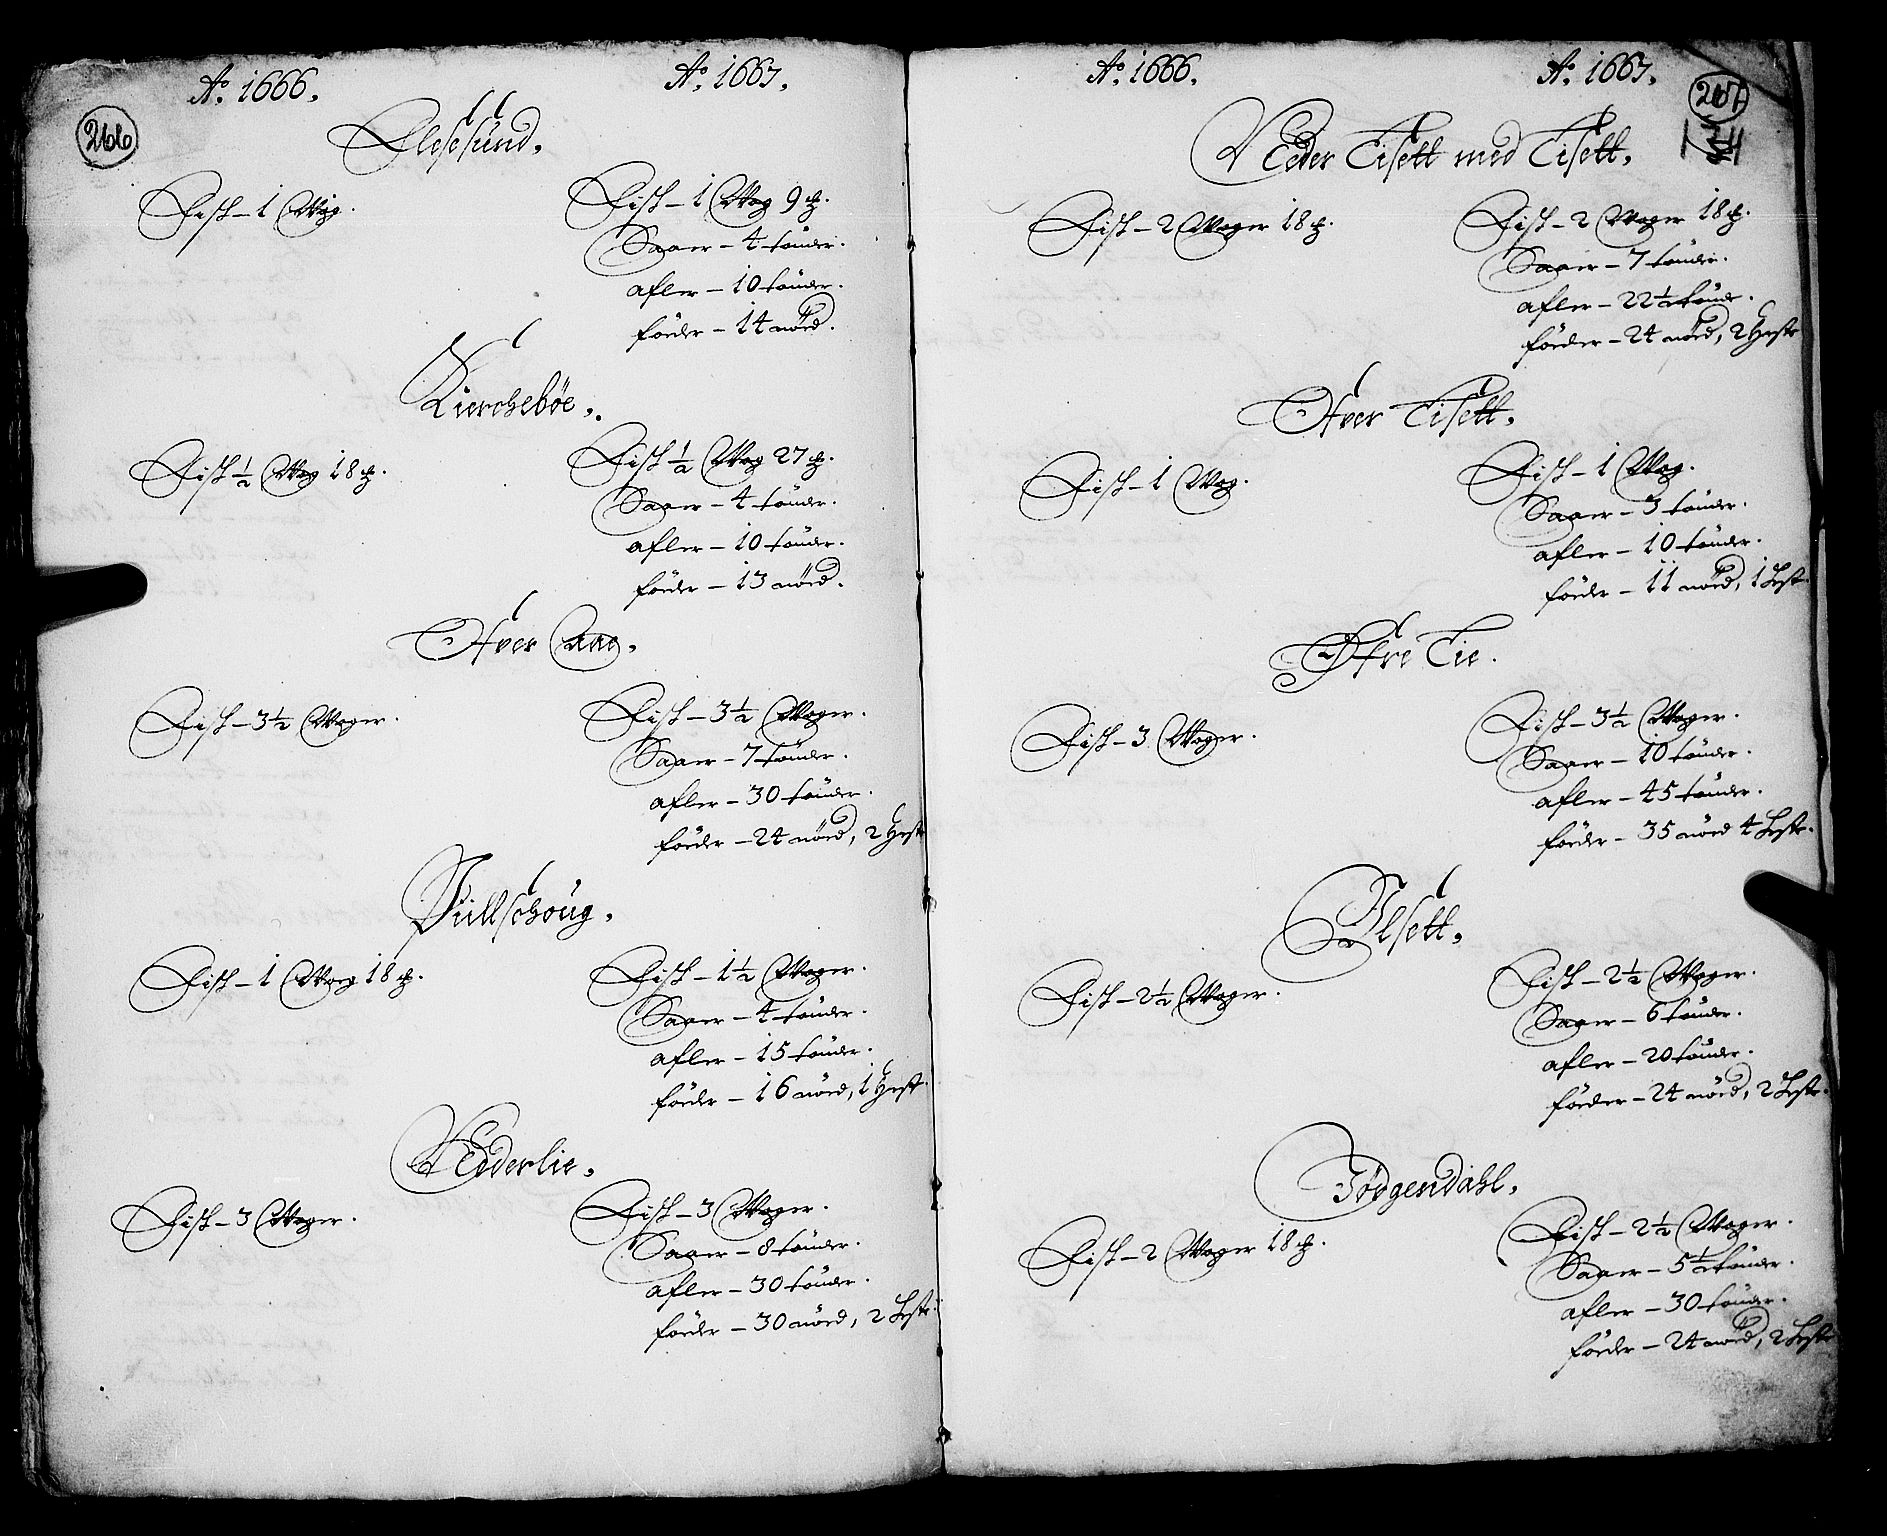 266
Aº. 1666. Aº. 1667.
Olesesund.
Fisk – 1 Wog. Fisk – 1 Wog 9 ℔.
Saaer – 4 tönder.
afler – 10 tönder.
föeder – 14 nöed.
Kierchebøe.
Fisk ½ Wog 18 ℔. Fisk ½ Wog 27 ℔.
Saaer – 4 tönder.
afler – 10 tönder.
föder – 13 nöed.
Ofver Aae.
Fisk – 3½ Woger. Fisk – 3½ Woger.
Saaer – 7 tönder.
afler – 30 tönder.
föeder – 24 nöed, 2 Heste
Fisk – 1 Wog 18 ℔. Fisk – 1½ Woger.
Saaer – 4 tönder.
afler – 15 tönder.
föeder – 16 nöed, 1 Hest.
Nedderlie.
Fisk – 3 Woger. Fisk – 3 Woger.
Saaer – 8 tönder.
afler – 30 tönder.
föeder – 30 nöed, 2 Heste.
267
Aº. 1666. Aº. 1667.
Neder Tisett med Tisett.
Fisk – 2 Woger 18 ℔. Fisk – 2 Woger 18 ℔.
Saaer – 7 tönder.
afler – 22½ tönder.
föeder – 24 nöed, 2 Heste
Ofver Tisett.
Fisk – 1 Wog. Fisk – 1 Wog.
Saaer – 3 tönder.
afler – 10 tönder.
föeder – 11 nöed, 1 Hest.
Øfre Lie.
Fisk – 3 Woger. Fisk – 3½ Woger.
Saaer – 10 tönder.
afler – 45 tönder.
föeder – 35 nöed 4 Heste.
Ilsett.
Fisk – 2½ Woger. Fisk – 2½ Woger.
Saaer – 6 tönder.
afler – 20 tönder.
föeder – 24 nöed, 2 Heste.
Jødgendahl.
Fisk – 2 Woger 18 ℔. Fisk – 2½ Woger.
Saaer – 5½ tönder.
afler – 30 tönder.
föeder – 24 nöed, 2 Heste